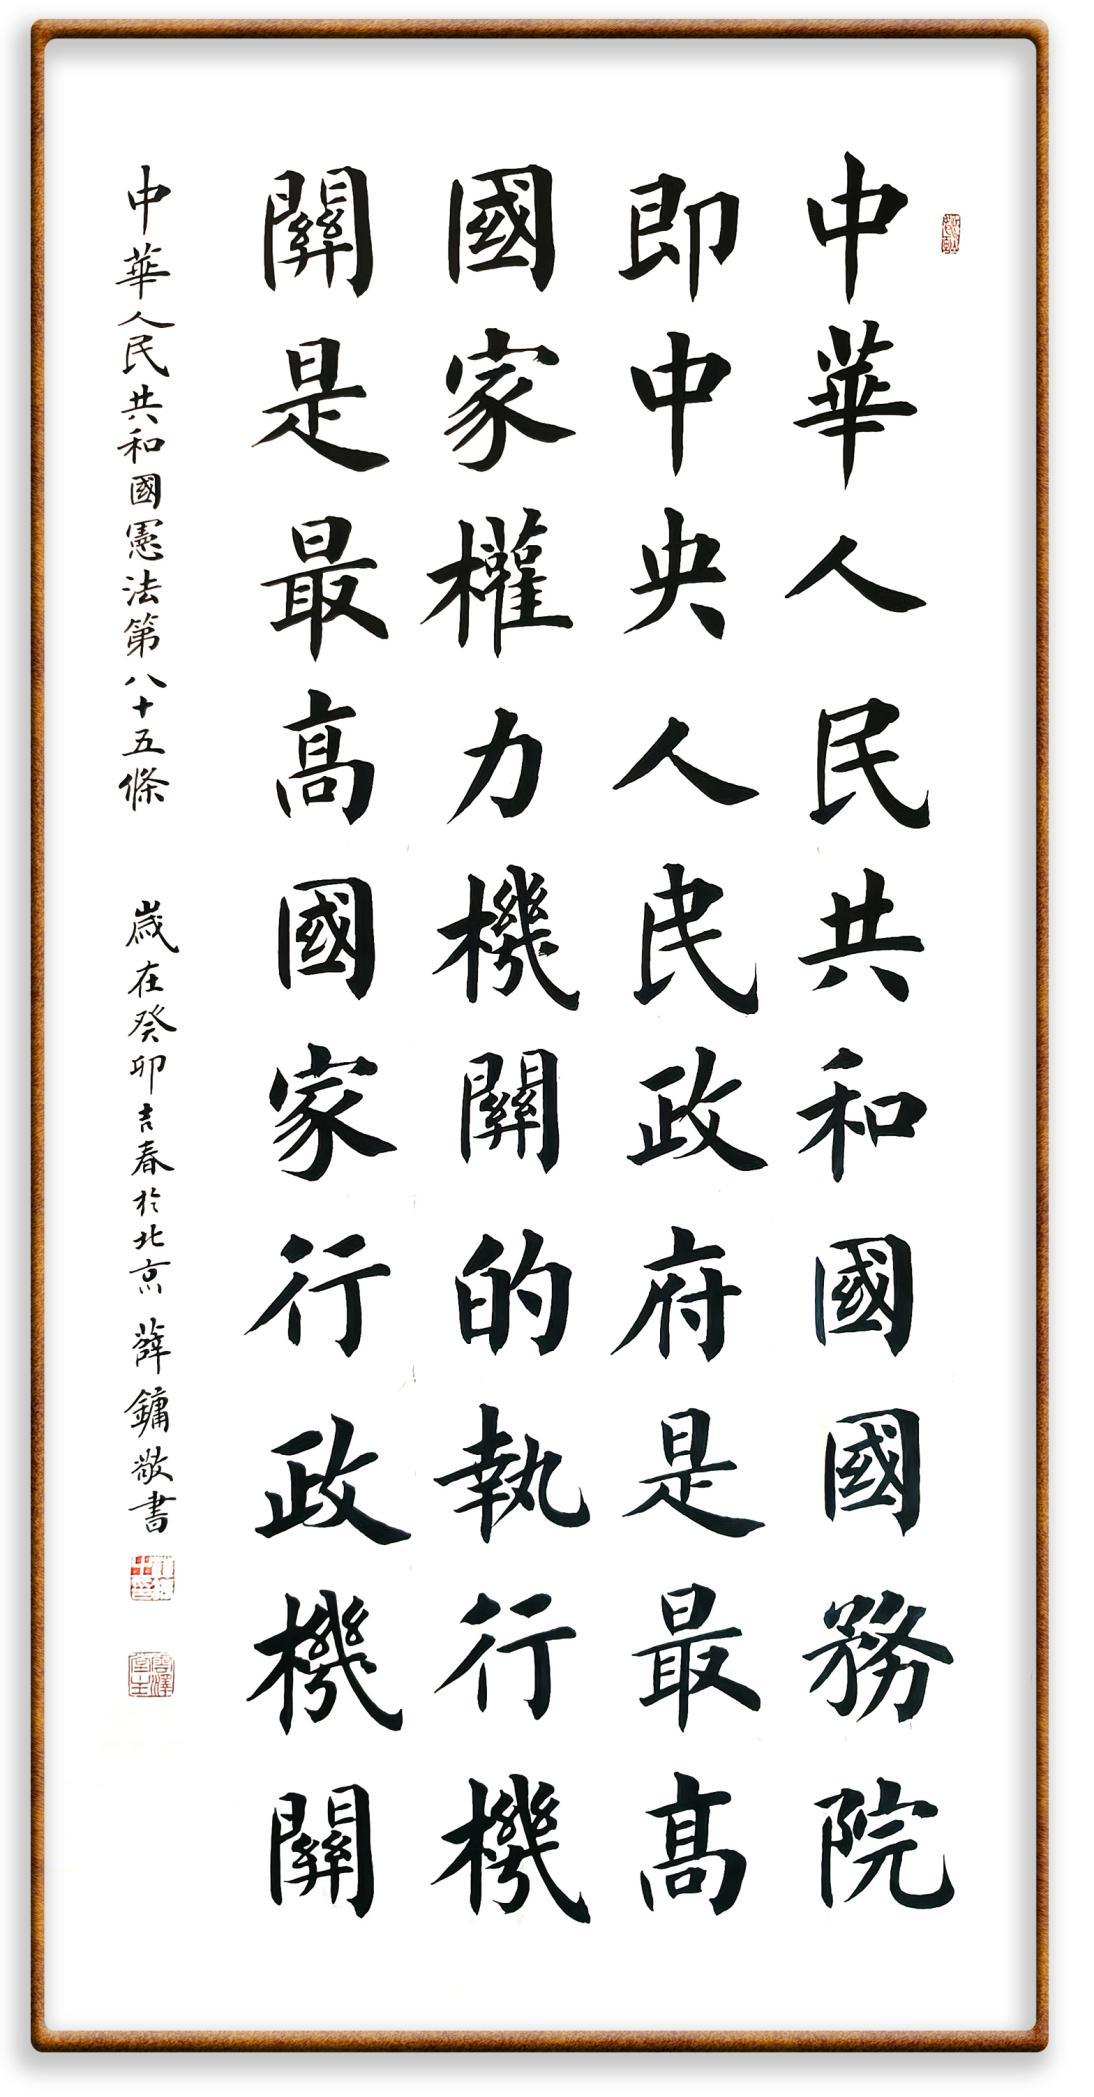 中華人民共和國國務院
即中央人民政府是最高
國家權力機關的執行機
關是最高國家行政機關
中華人民共和國憲法第八十五條 歲在癸卯吉春於北京 薛鏞敬書